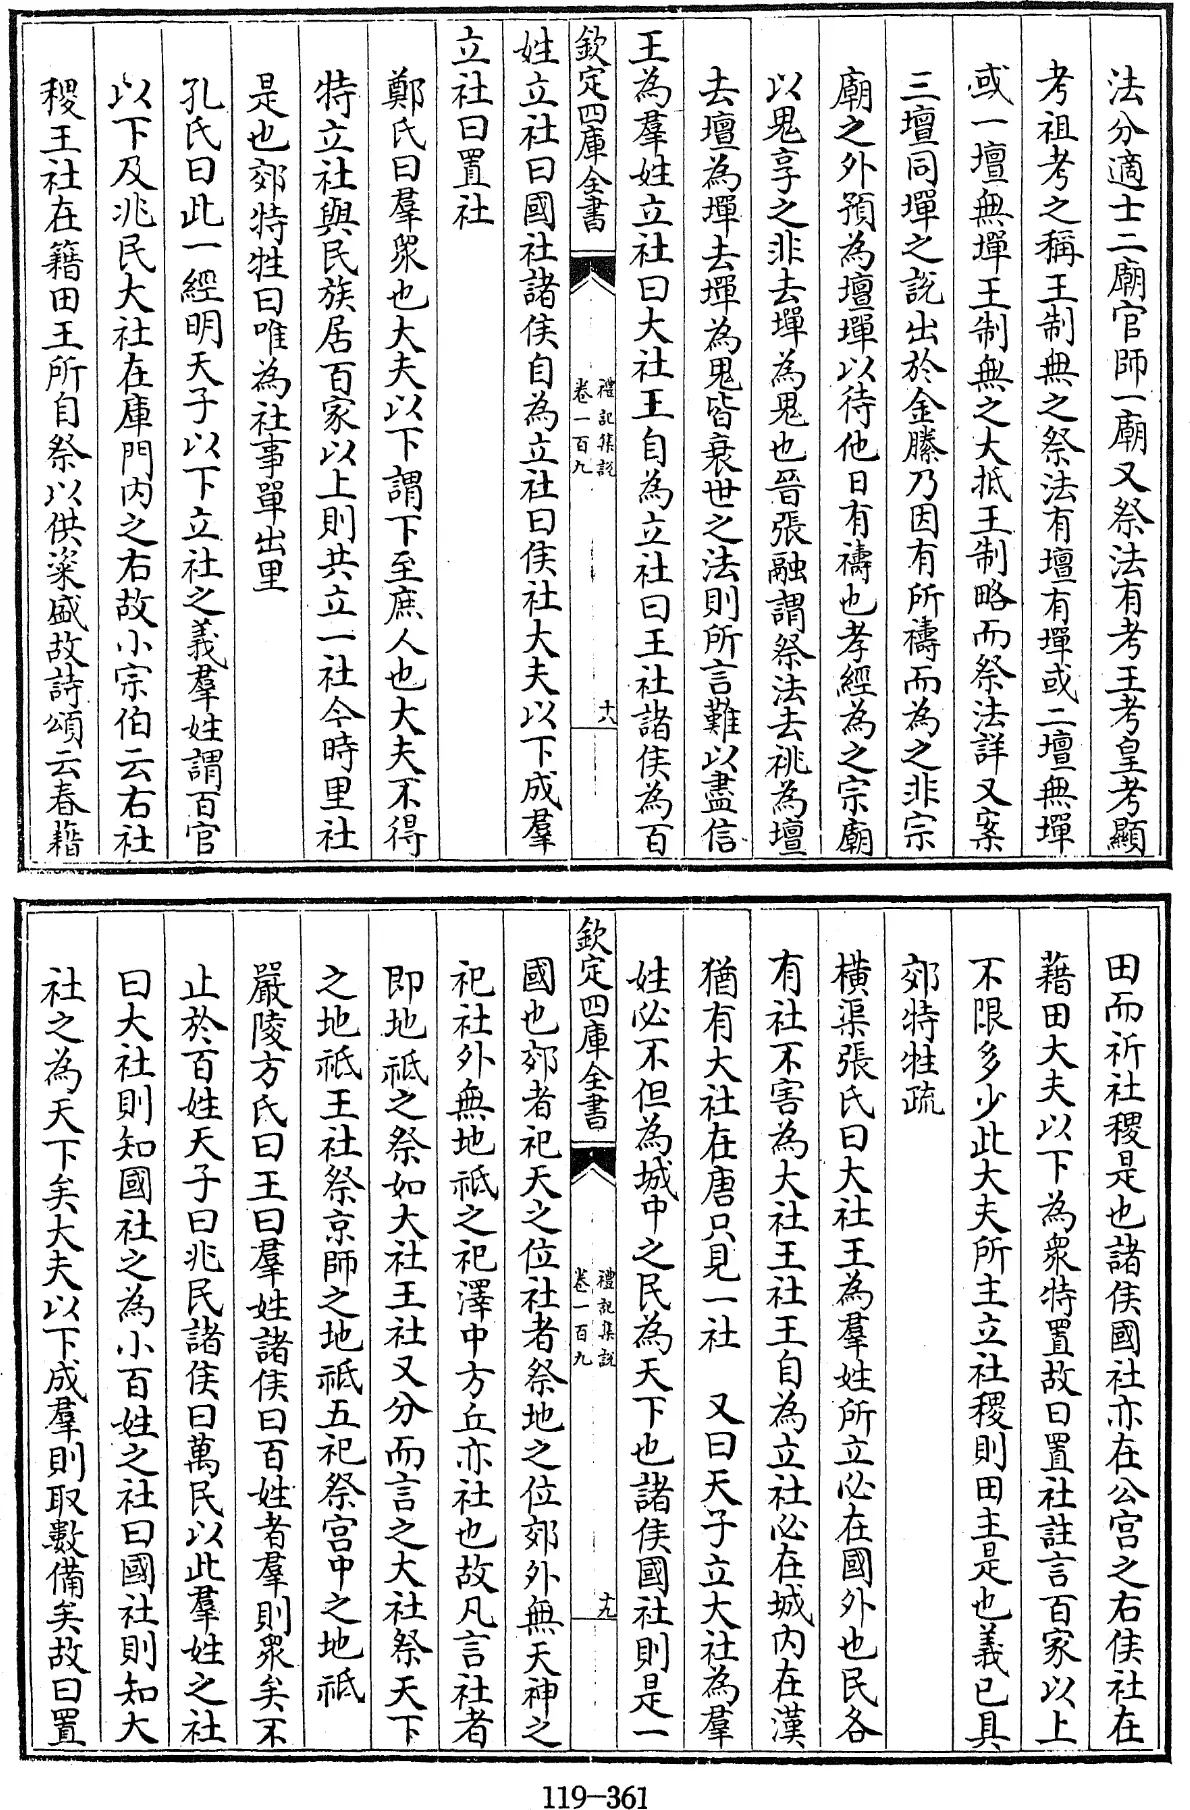 法分適士二廟官師一廟又祭法有考王考皇考顯
考祖考之稱王制無之祭法有壇有墠或二壇無墠
或一壇無墠王制無之大抵王制略而祭法詳又案
三壇同墠之説出於金縢乃因有所禱而為之非宗
廟之外預為壇墠以待他日有禱也孝經為之宗廟
以鬼享之非去墠為鬼也晉張融謂祭法去祧為壇
去壇為墠去墠為鬼皆衰世之法則所言難以盡信
王為羣姓立社曰大社王自為立社曰王社諸侯為百
欽定四庫全書
禮記集説
卷一百九
十八
姓立社曰國社諸侯自為立社曰侯社大夫以下成羣
立社曰置社
鄭氏曰羣衆也大夫以下謂下至庶人也大夫不得
特立社與民族居百家以上則共立一社今時里社
是也郊特牲曰唯為社事單出里
孔氏曰此一經明天子以下立社之義羣姓謂百官
以下及兆民大社在庫門内之右故小宗伯云右社
稷王社在籍田王所自祭以供粢盛故詩頌云春藉
田而祈社稷是也諸侯國社亦在公宫之右侯社在
藉田大夫以下為衆特置故曰置社註言百家以上
不限多少此大夫所主立社稷則田主是也義已具
郊特牲疏
橫渠張氏曰大社王為羣姓所立必在國外也民各
有社不害為大社王社王自為立社必在城内在漢
猶有大社在唐只見一社 又曰天子立大社為羣
姓必不但為城中之民為天下也諸侯國社則是一
欽定四庫全書
禮記集説
卷一百九
十九
國也郊者祀天之位社者祭地之位郊外無天神之
祀社外無地祗之祀澤中方丘亦社也故凡言社者
即地祗之祭如大社王社又分而言之大社祭天下
之地祗王社祭京師之地祗五祀祭宫中之地祗
嚴陵方氏曰王曰羣姓諸侯曰百姓者羣則衆矣不
止於百姓天子曰兆民諸侯曰萬民以此羣姓之社
曰大社則知國社之為小百姓之社曰國社則知大
社之為天下矣大夫以下成羣則取數備矣故曰置
119-361